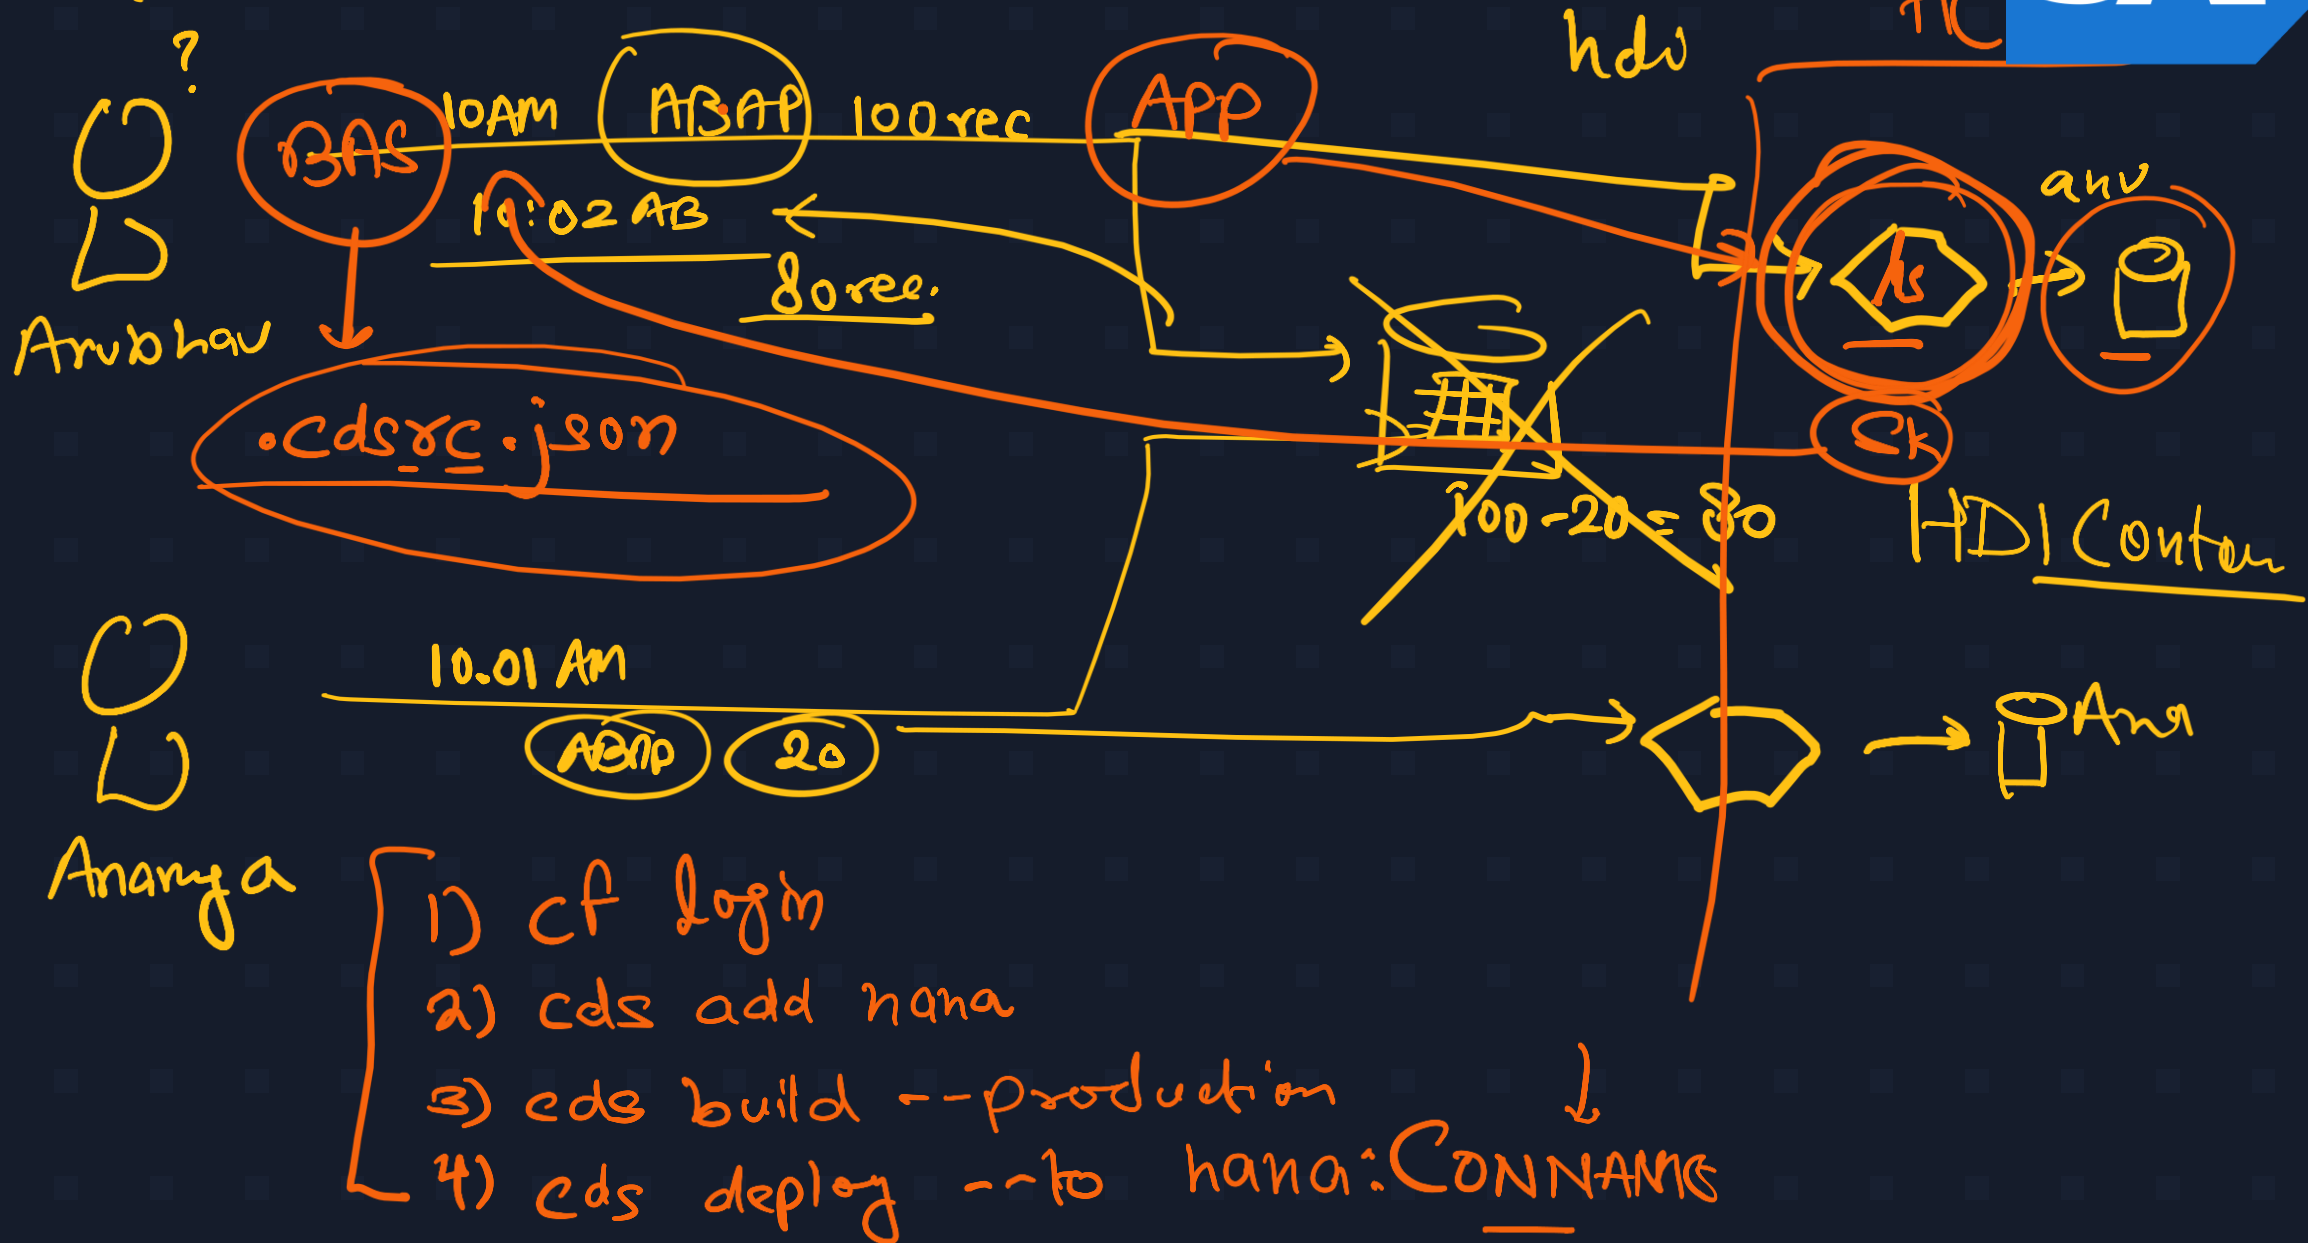 ?
hdi
BAS
10AM
ABAP
100 rec
APP
10:02 AB
80 rec.
anv
hs
Anubhav
.cdsrc.json
Sk
100-20 = 80
HDI Contain
10.01 AM
ABAP
20
Ana
Ananya
1) cf login
2) cds add hana
3) cds build --production
4) cds deploy --to hana:CONNAME